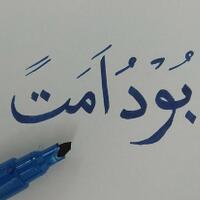 بُوْدُ اَمَتً